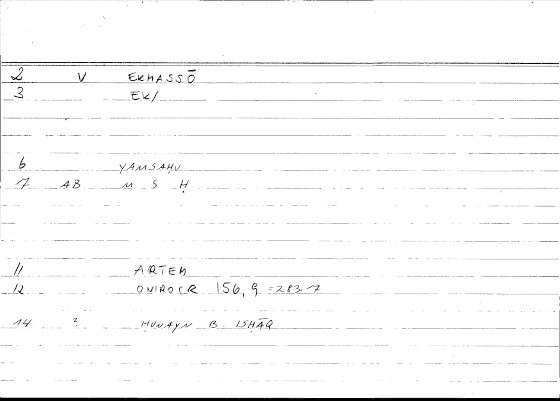 2 V EKMASSŌ
3 EK/
6 YAMSAḤU
7 AB M S Ḥ
11 ARTEM
12 ONIROCR 156, 9 = 283.7
14 2 ḤUNAYN B. ISḤĀQ